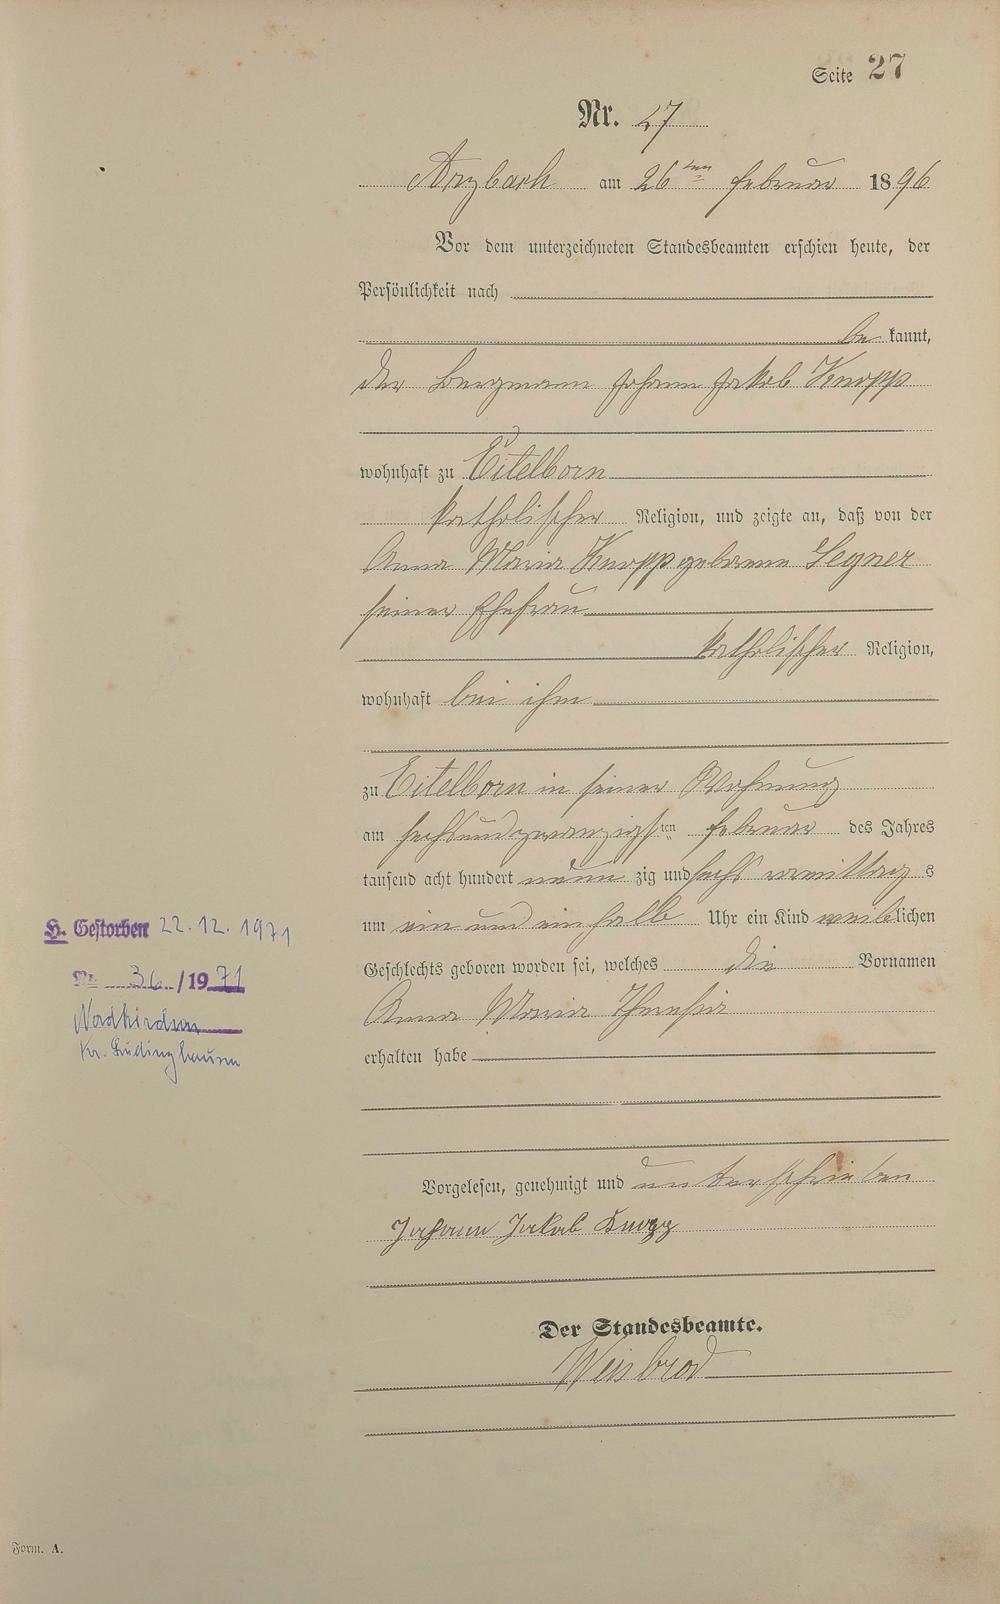 Seite 27
Nr. 27
Arzbach am 26ten Februar 1896
Vor dem unterzeichneten Standesbeamten erschien heute, der
Persönlichkeit nach
be kannt,
der Bergmann Johann Jakob Knopp
wohnhaft zu Eitelborn
katholischer Religion, und zeigte an, daß von der
Anna Maria Knopp geborene Segner
seiner Ehefrau
katholischer Religion,
wohnhaft bei ihm
zu Eitelborn in seiner Wohnung
am sechsundzwanzigsten Februar des Jahres
tausend acht hundert neun zig und sechs vormittag s
um ein und ein halb Uhr ein Kind weiblichen
Geschlechts geboren worden sei, welches die Vornamen
Anna Maria Theresia
erhalten habe
H. Gestorben 22.12.1971
Nr. 36/1971
Nordkirchen
Kr. Lüdinghausen
Vorgelesen, genehmigt und unterschrieben
Johann Jakob Knopp
Der Standesbeamte.
Weisbrod
Form. A.